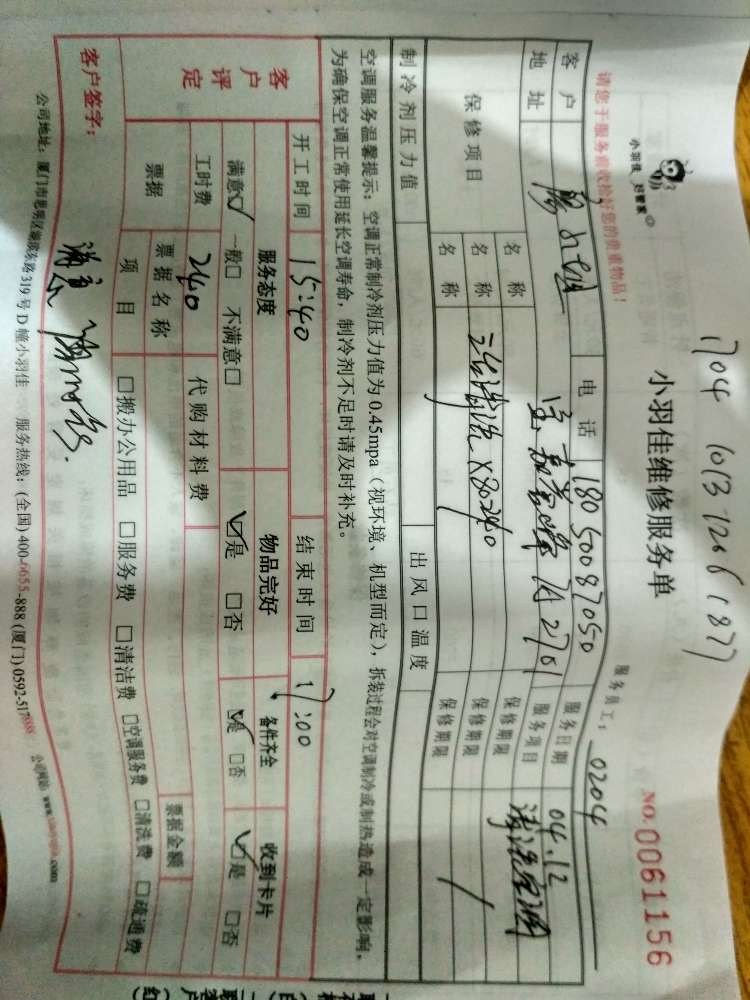 1704 1013 1206 1877
小羽佳 好管家
小羽佳维修服务单
NO.0061156
请您于服务前收检好您的贵重物品！
服务员工：02044
客户 电话 18050087050 服务日期 04.12
地址 2701 服务项目 清洗空调
保修项目 名称 保修期限
名称 保修期限
名称 X80 240 保修期限
制冷剂压力值 出风口温度
空调服务温馨提示：空调正常制冷剂压力值为0.45mpa（视环境、机型而定），拆装过程会对空调制冷或制热造成一定影响，
为确保空调正常使用延长空调寿命，制冷剂不足时请及时补充。
开工时间 15:40 结束时间 17:00
客户评定 服务态度 物品完好 备件齐全 收到卡片
满意☑ 一般□ 不满意□ ☑是 □否 ☑是 □否 ☑是 □否
工时费 240 代购材料费
票据 票据名称 票据金额
项目 □搬办公用品 □服务费 □清洁费 □空调服务费 □清洗费 □疏通费
客户签字： 满意
公司地址：厦门市思明区 319号D幢小羽佳 服务热线：(全国) 400-6655-888 (厦门) 0592-517